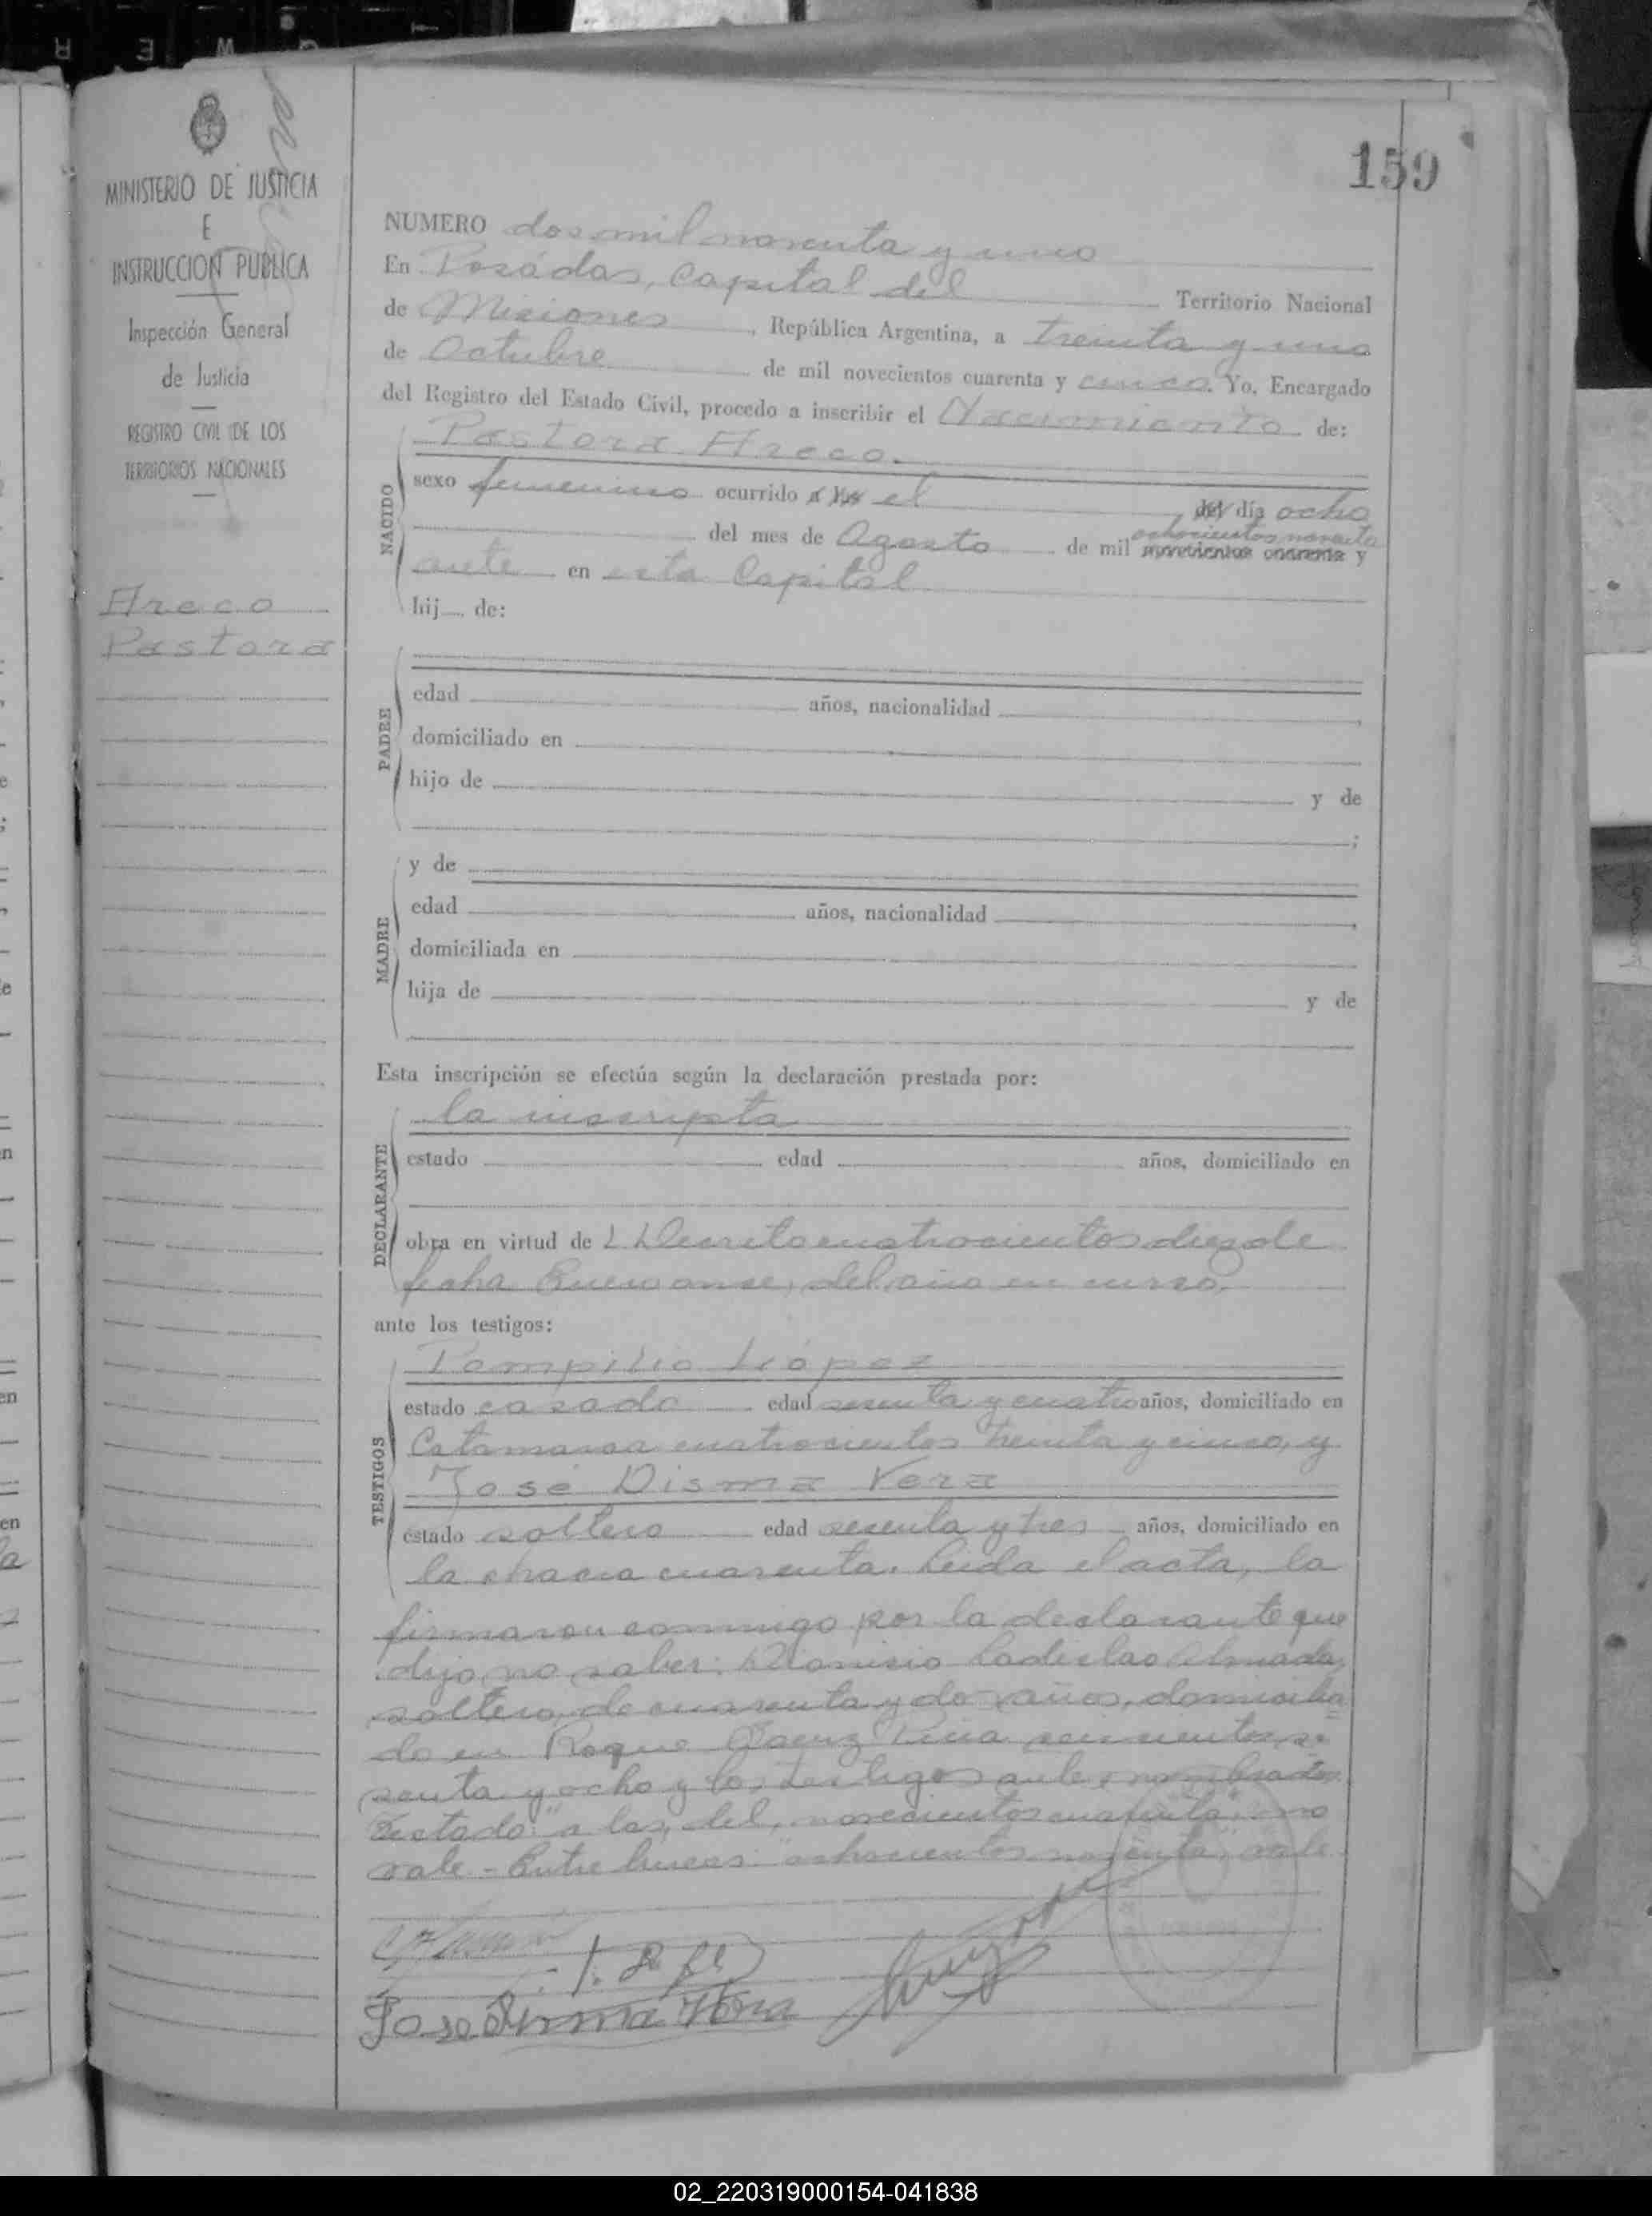 159
MINISTERIO DE JUSTICIA
E
INSTRUCCION PUBLICA
Inspección General
de Justicia
REGISTRO CIVIL DE LOS
TERRITORIOS NACIONALES
Areco
Pastora
NUMERO dos mil noventa y uno
En Posádas, Capital del Territorio Nacional
de Misiones, República Argentina, a treinta y uno
de Octubre de mil novecientos cuarenta y cinco. Yo, Encargado
del Registro del Estado Civil, procedo a inscribir el Nacimiento de:
Pastora Areco.
NACIDO
sexo femenino ocurrido a las el del día ocho
ochocientos noventa
del mes de Agosto de mil novecientos cuarenta y
en esta Capital
hij de:
PADRE
edad años, nacionalidad
domiciliado en
hijo de y de
;
MADRE
y de
edad años, nacionalidad
domiciliada en
hija de y de
Esta inscripción se efectúa según la declaración prestada por:
DECLARANTE
la inscripta
estado edad años, domiciliado en
obra en virtud de Decreto cuatrocientos diez de
fecha Enero once, del año en curso.
ante los testigos:
TESTIGOS
Pompilio López
estado casado edad y cuatro años, domiciliado en
Catamarca cuatrocientos treinta y cinco, y
José Disma Vera
estado soltero edad sesenta y tres años, domiciliado en
la chacra cuarenta. Leida el acta, la
firmaron conmigo por la declarante que
dijo no saber: Dionisio Ladislao Almada,
soltero, de cuarenta y dos años, domicilia
do en Roque Saenz Peña
y ocho y los testigos antes nombrados.
Testado: "a las, del, novecientos cuarenta" no
vale - Entre lineas: "ochocientos noventa" vale.
Jose Disma Vera
02_220319000154-041838